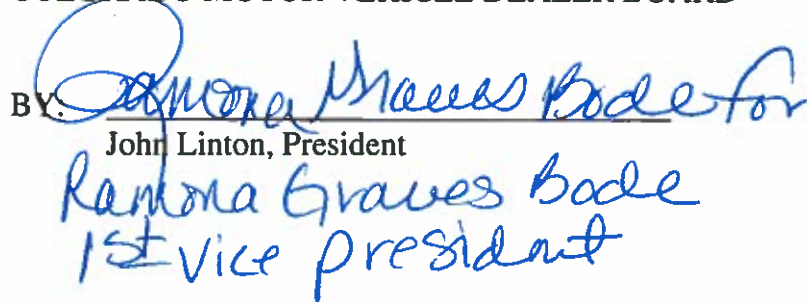 BY: Ramona Graves Bode for
John Linton, President
Ramona Graves Bode
1st vice president